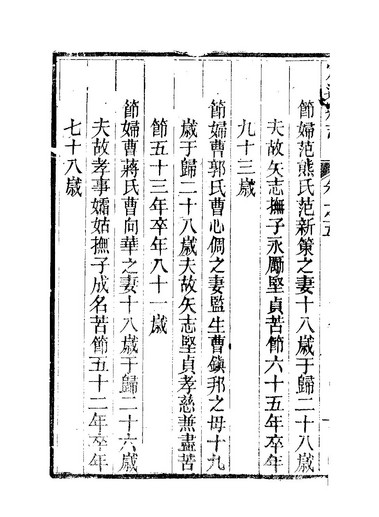 節婦范熊氏范新策之妻十八歲于歸二十八歲
夫故矢志撫子永勵堅貞苦節六十五年卒年
九十三歲
節婦曹郭氏曹心倜之妻監生曹鎮邦之母十九
歲于歸二十八歲夫故矢志堅貞孝慈兼盡苦
節五十三年卒年八十一歲
節婦曹蔣氏曹向華之妻十八歲于歸二十六歲
夫故孝事孀姑撫子成名苦節五十二年卒年
七十八歲